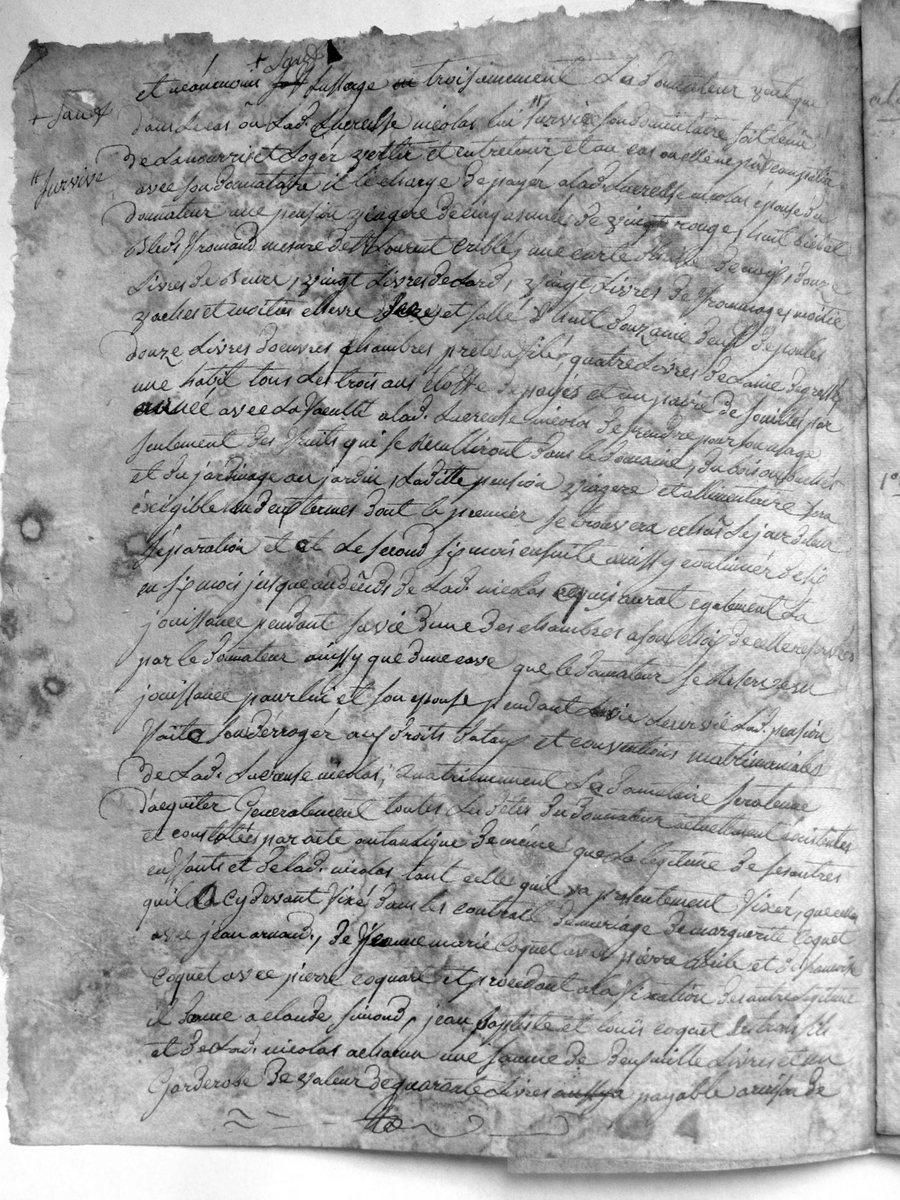 + Sauf
et néanmoins sauf l'usage en troisiemement Le donnateur veut que
+ sauf
dans le cas où Lad. Lucresse nicolas lui " survive son donnataire soit tenu
" survive
de la nourrir et Loger vettir et entretenir et au cas ou elle ne put compatir
avec son donnataire il le charge de payer a lad. Lucresse nicolas epouse du
donnateur une pension viagere de cinq asnées de vin rouge, huit bichet
bleds fromand mesure de St Laurent criblé, une carte d'huile de noix, douze
Livres de beure, vingt Livres de Lard, vingt Livres de frommages moitié
vaches et moitier chevre secs et sallé, huit douzaine d'œufs de poules
douze Livres d'oeuvres chambres prete a filé, quatre Livres de Laine de grasse
une habit tous Les trois ans étoffe de payes et un paire de souilles par
année avec La faculté a lad. Lucresse nicolas de prendre pour son usage
seulement des fruits qui se recueilliront dans le domaine, du bois
et du jardinage au jardin, Laditte pension viagere et allimentaire sera
exigible en deux termes dont le premier se trouvera echus Le jour de leur
separation et et Le second six mois ensuite ainssy continuer de six
en six mois jusque au décéds de Lad. nicolas egalement La
jouissance pendant sa vie d'une des chambres a son choix de celle reservées
par le donnateur ainssy que d'une cave que le donnateur se reserve en
jouissance pour lui et son epouse pendant Leur vie Lad. pension
faite sans derroger aux droits dotaux et conventions matrimoniales
de Lad. Lucresse nicolas, quatriemement Le donnataire sera tenue
d'aquiter Generalement toutes Les dètes du donnateur actuellement éxistantes
et constatées par acte autantique de même que La legitime de ses autres
enffants et de Lad. nicolas tant celle quil va presentement fixer, que celle
quil a cy devant fixé dans les contrats de mariage de marguerite Coquet
avec jean arnaud, de jeanne marie Coquet avec pierre et de francoise
Coquet avec pierre coquard et procedant a la fixation des autres legitime
il donne a claude simond, jean baptiste et Louis coquet Leurs trois fils
et de Lad. nicolas a chacun une somme de deux mille Livres et un
Garderobe de valeur de quarante Livres payable a raison de